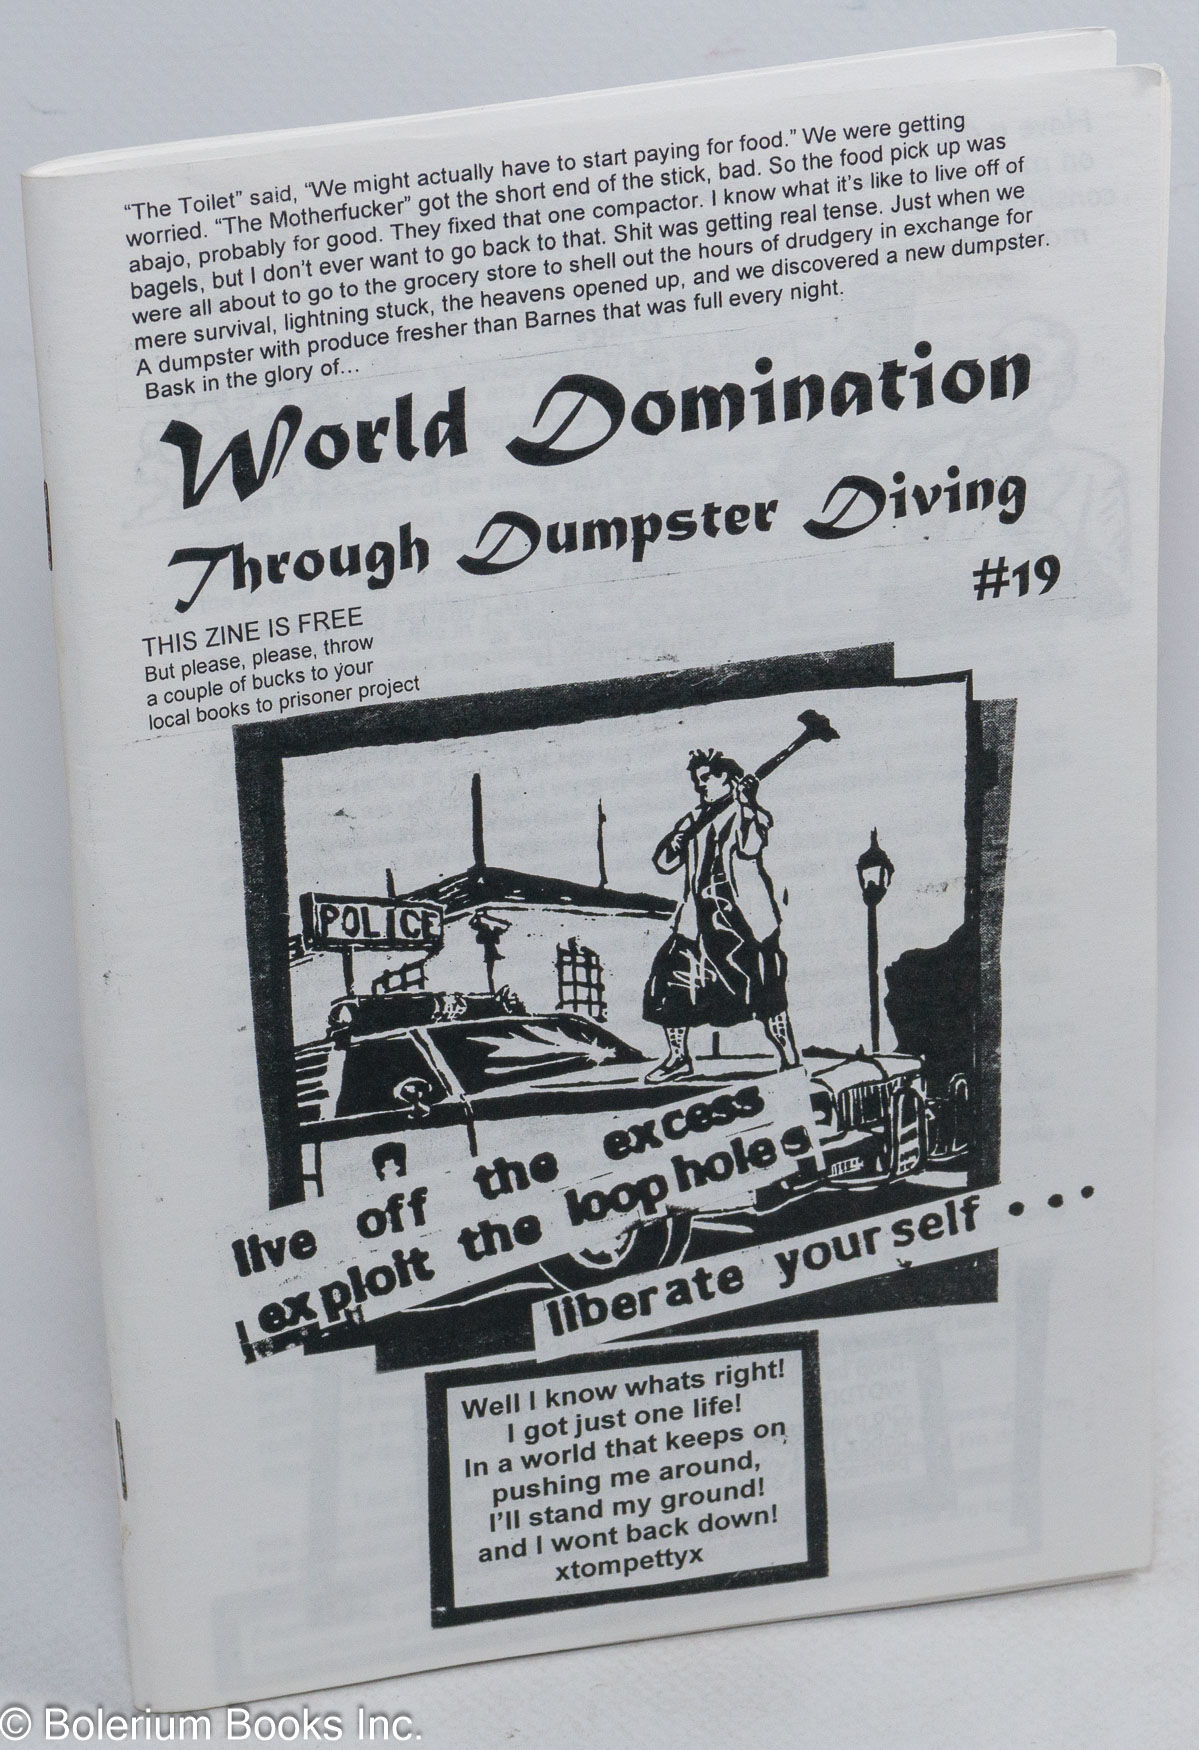 “The Toilet” said, “We might actually have to start paying for food.” We were getting
worried. “The Motherfucker” got the short end of the stick, bad. So the food pick up was
abajo, probably for good. They fixed that one compactor. I know what it’s like to live off of
bagels, but I don’t ever want to go back to that. Shit was getting real tense. Just when we
were all about to go to the grocery store to shell out the hours of drudgery in exchange for
mere survival, lightning stuck, the heavens opened up, and we discovered a new dumpster.
A dumpster with produce fresher than Barnes that was full every night.
Bask in the glory of...
World Domination
Through Dumpster Diving
#19
THIS ZINE IS FREE
But please, please, throw
a couple of bucks to your
local books to prisoner project
POLICE
live off the excess
exploit the loopholes
liberate yourself...
Well I know whats right!
I got just one life!
In a world that keeps on
pushing me around,
I’ll stand my ground!
and I wont back down!
xtompettyx
© Bolerium Books Inc.